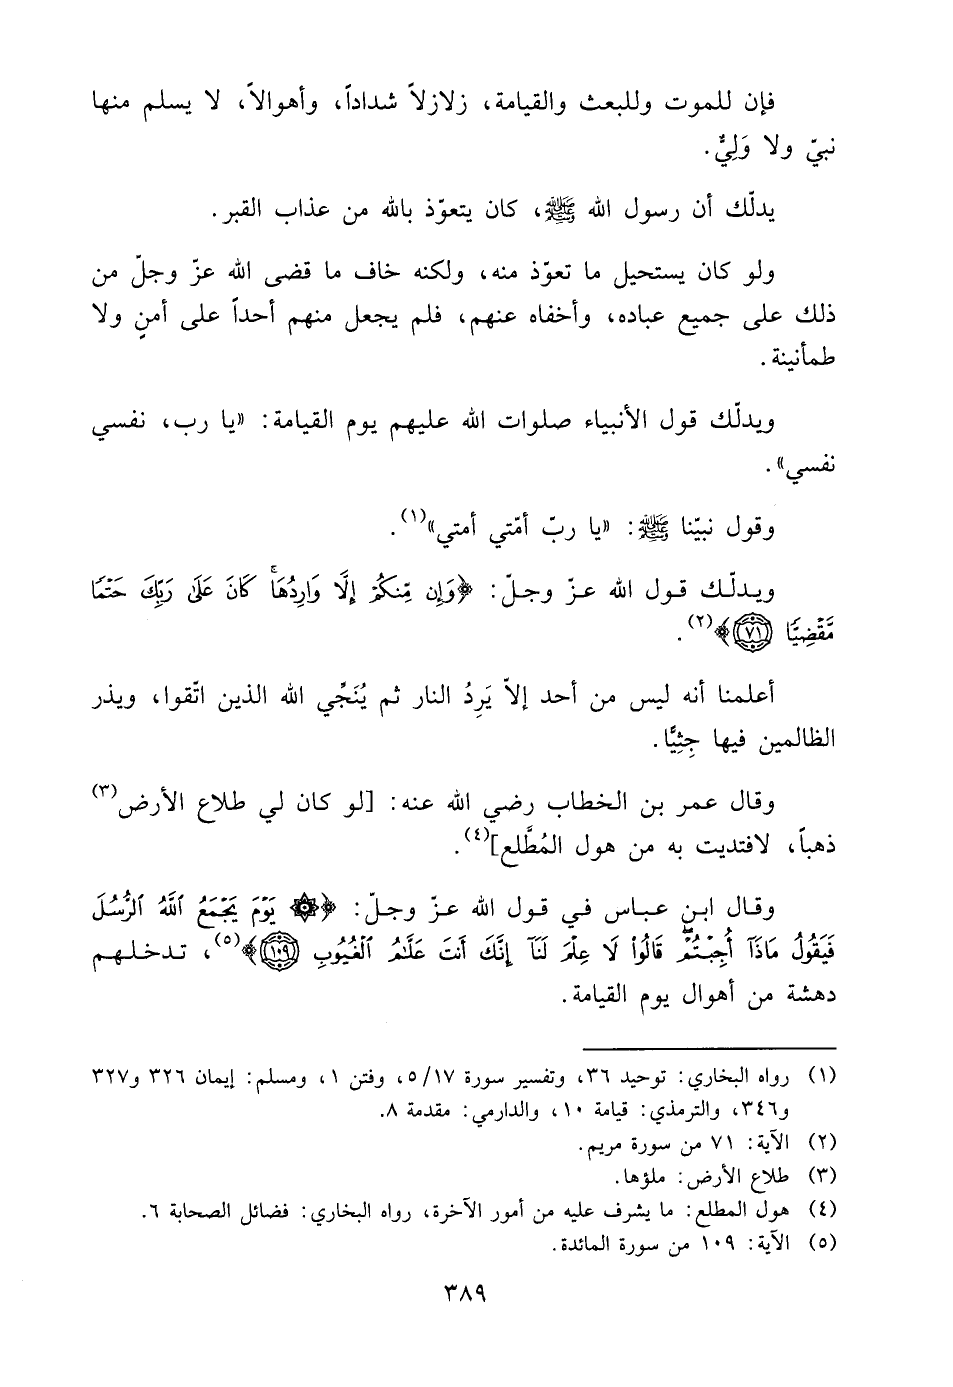 فإن للموت وللبعث والقيامة، زلازلاً شداداً، وأهوالاً، لا يسلم منها
نبيّ ولا وَلِيٌّ.
يدلّك أن رسول الله ﷺ، كان يتعوّذ بالله من عذاب القبر.
ولو كان يستحيل ما تعوّذ منه، ولكنه خاف ما قضى الله عزّ وجلّ من
ذلك على جميع عباده، وأخفاه عنهم، فلم يجعل منهم أحداً على أمنٍ ولا
طمأنينة.
ويدلّك قول الأنبياء صلوات الله عليهم يوم القيامة: «يا رب، نفسي
نفسي».
وقول نبيّنا ﷺ: «يا ربّ أمّتي أمتي»(١).
ويدلّك قول الله عزّ وجلّ: ﴿وَإِن مِّنكُمْ إِلَّا وَارِدُهَاۚ كَانَ عَلَىٰ رَبِّكَ حَتْمًا
مَّقْضِيًّا ۝٧١﴾(٢).
أعلمنا أنه ليس من أحد إلاّ يَرِدُ النار ثم يُنَجِّي الله الذين اتّقوا، ويذر
الظالمين فيها جِثِيًّا.
وقال عمر بن الخطاب رضي الله عنه: [لو كان لي طلاع الأرض(٣)
ذهباً، لافتديت به من هول المُطَّلع](٤).
وقال ابن عباس في قول الله عزّ وجلّ: ﴿۞ يَوْمَ يَجْمَعُ ٱللَّهُ ٱلرُّسُلَ
فَيَقُولُ مَاذَآ أُجِبْتُمْۖ قَالُوا۟ لَا عِلْمَ لَنَآ إِنَّكَ أَنتَ عَلَّٰمُ ٱلْغُيُوبِ ۝١٠٩﴾(٥)، تدخلهم
دهشة من أهوال يوم القيامة.
(١) رواه البخاري: توحيد ٣٦، وتفسير سورة ١٧/٥، وفتن ١، ومسلم: إيمان ٣٢٦ و٣٢٧
و٣٤٦، والترمذي: قيامة ١٠، والدارمي: مقدمة ٨.
(٢) الآية: ٧١ من سورة مريم.
(٣) طلاع الأرض: ملؤها.
(٤) هول المطلع: ما يشرف عليه من أمور الآخرة، رواه البخاري: فضائل الصحابة ٦.
(٥) الآية: ١٠٩ من سورة المائدة.
٣٨٩